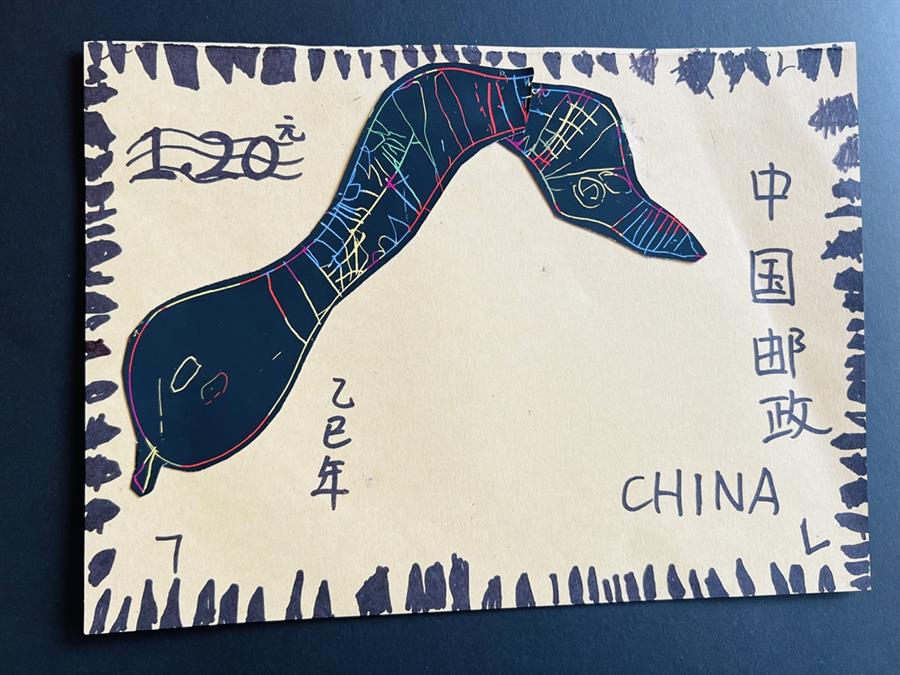 1.20元
中国邮政
乙巳年
CHINA